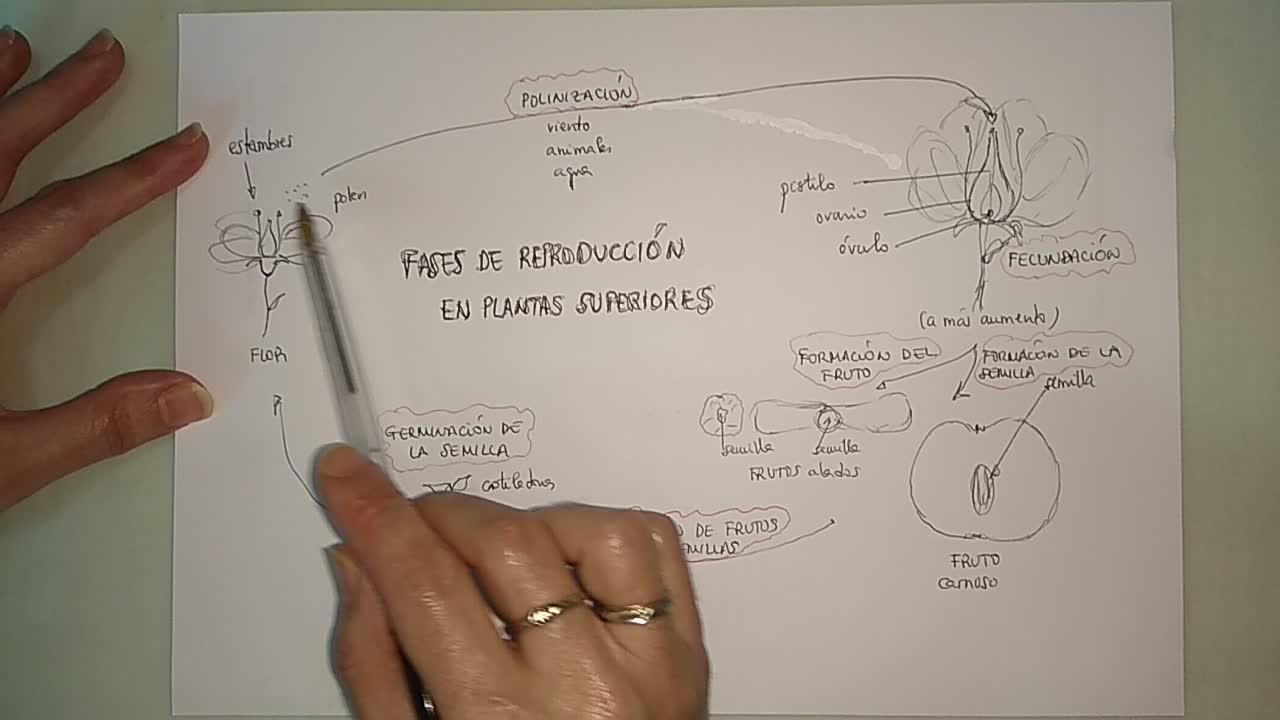 POLINIZACIÓN
viento
animales
agua
estambres
polen
FLOR
FASES DE REPRODUCCIÓN
EN PLANTAS SUPERIORES
pistilo
ovario
óvulo
FECUNDACIÓN
(a más aumento)
FORMACIÓN DEL
FRUTO
FORMACIÓN DE LA
SEMILLA
semilla
semilla
semilla
FRUTOS alados
FRUTO
carnoso
GERMINACIÓN DE
LA SEMILLA
DE FRUTOS